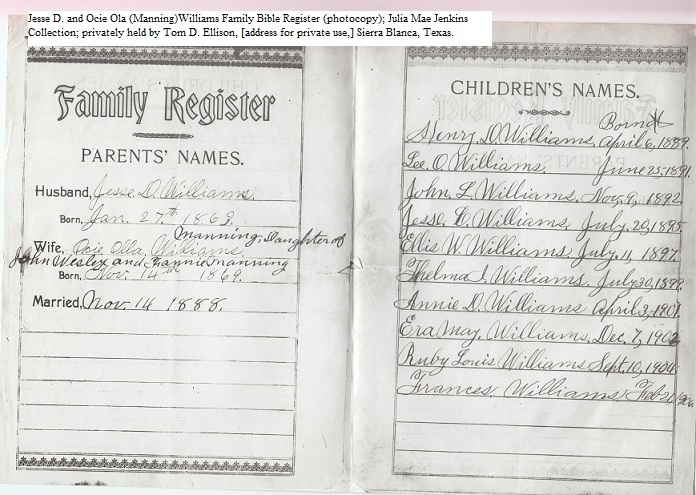 Jesse D. and Ocie Ola (Manning)Williams Family Bible Register (photocopy); Julia Mae Jenkins
Collection; privately held by Tom D. Ellison, [address for private use,] Sierra Blanca, Texas.
Family Register
PARENTS' NAMES.
Husband, Jesse D. Williams.
Born, Jan. 27th 1863.
Manning; Daughter of
Wife, Ocie Olla, Williams.
John Wesley and Fannie Manning
Born, Nov. 14th 1869.
Married, Nov. 14 1888.
CHILDREN'S NAMES.
Born
Henry D. Williams, April 6, 1889.
Lee. O. Williams. June 25, 1891.
John L. Williams, Nov. 9, 1892
Jesse. Williams, July. 20, 1895.
Ellis W. Williams, July. 11, 1897.
Thelma I. Williams, July 30, 1899.
Annie D. Williams April 3, 1901.
Era May. Williams, Dec. 7, 1902
Ruby Louis Williams Sept. 10, 1904
Frances. Williams Feb